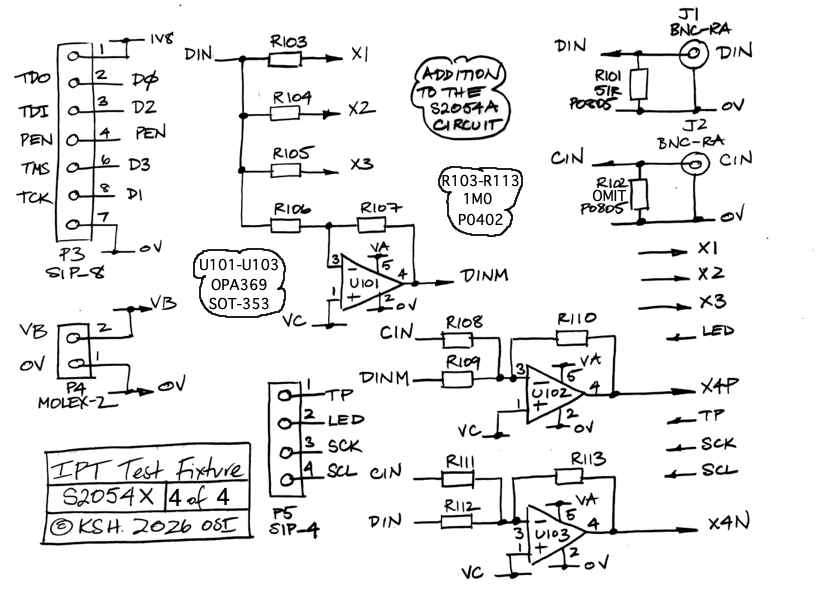 1
1V8
TDO 2 DØ
TDI 3 D2
PEN 4 PEN
TMS 6 D3
TCK 8 D1
7
0V
P3
SIP-8
DIN R103 X1
R104 X2
R105 X3
R106 R107
VA
3 - 5 4 DINM
U101
1 + 2 0V
VC
ADDITION
TO THE
S2054A
CIRCUIT
R103-R113
1M0
P0402
U101-U103
OPA369
SOT-353
J1
BNC-RA
DIN DIN
R101
51R
P0805
0V
J2
BNC-RA
CIN CIN
R102
OMIT
P0805
0V
X1
X2
X3
LED
X4P
TP
SCK
SCL
X4N
VB
VB 2
0V 1
0V
P4
MOLEX-2
1 TP
2 LED
3 SCK
4 SCL
P5
SIP-4
CIN R108 R110
DINM R109
VA
3 - 5 4
U102
1 + 2 0V
VC
CIN R111 R113
DIN R112
VA
3 - 5 4
U103
1 + 2 0V
VC
IPT Test Fixture
S2054X 4 of 4
© KSH. 2026 OSI